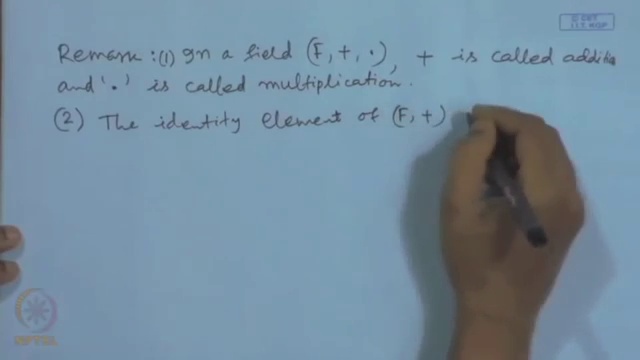 © CET
I.I.T. KGP
Remark : (1) In a field (F, +, ·), + is called addition
and '·' is called multiplication.
(2) The identity element of (F, +)
NPTEL